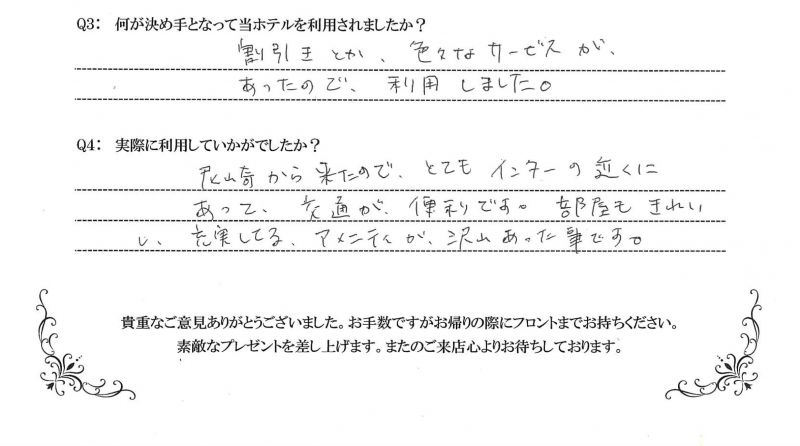 Q3: 何が決め手となって当ホテルを利用されましたか？
割引きとか、色々なサービスが、
あったので、利用しました。
Q4: 実際に利用していかがでしたか？
尼崎から来たので、とてもインターの近くに
あって、交通が、便利です。部屋もきれい
し、充実してる、アメニティが、沢山あった事です。
貴重なご意見ありがとうございました。お手数ですがお帰りの際にフロントまでお持ちください。
素敵なプレゼントを差し上げます。またのご来店心よりお待ちしております。